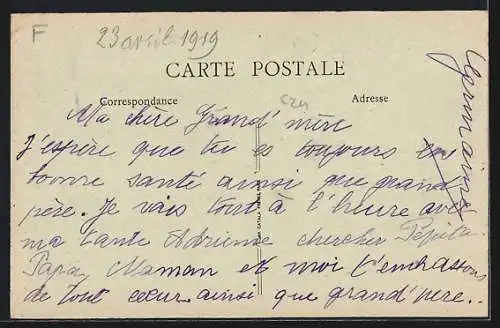 F
23 avril 1919
CARTE POSTALE
Correspondance
Adresse
C24
Ma chère Grand' mère
J'espère que tu es toujours en
bonne santé ainsi que grand
père. Je vais tout à l'heure avec
ma tante Adrienne chercher Pépita.
Papa, Maman et moi t'embrassons
de tout cœur ainsi que grand'père..
Germaine